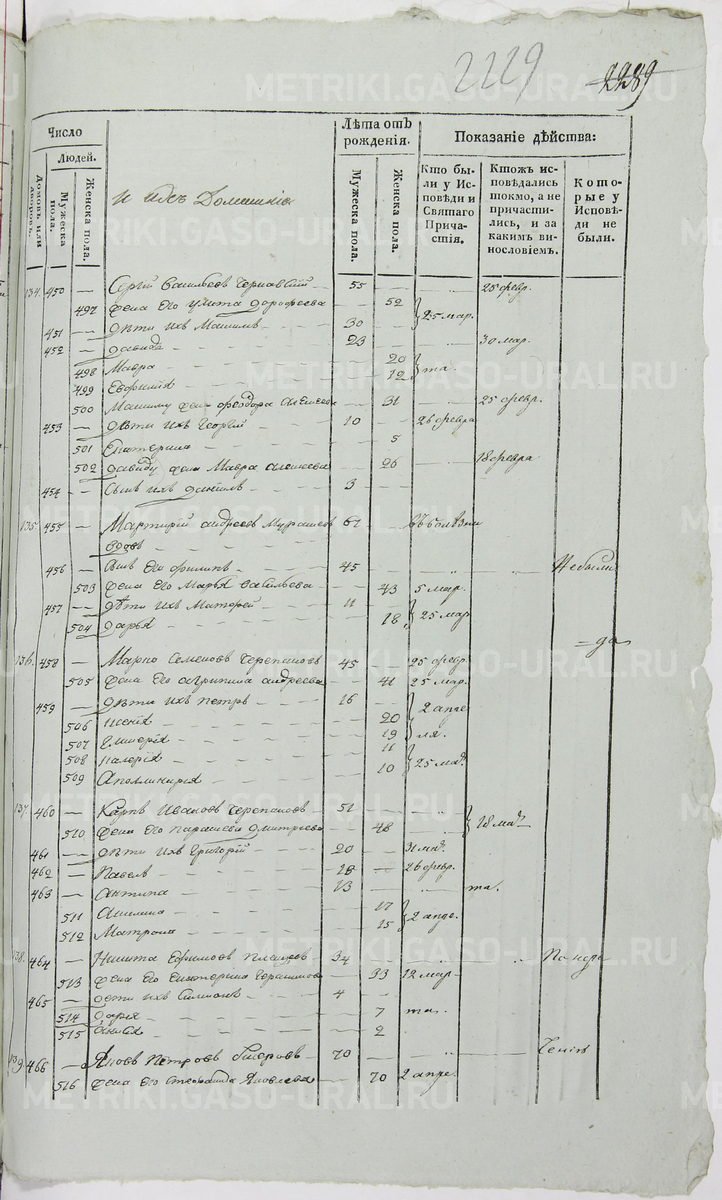 2229
2289
Число
Людей.
Домовъ или дворовъ.
Мужеска пола.
Женска пола.
И ихъ Домашнія
Лѣта отъ рожденія.
Мужеска пола.
Женска пола.
Показаніе дѣйства:
Кто были у Исповѣди и Святаго Причастія.
Ктожъ исповѣдались токмо, а не причастились, и за какимъ винословіемъ.
Которые у Исповѣди не были.
134. 450 — Сергій Васильевъ 55 25 февр.
497 Жена его Улита Дорофеева 52
451 — Дѣти ихъ Максимъ 30 25 мар.
452 — Давидъ 23 30 мар.
498 Мавра 20
499 Евфимія 12 та.
500 Максиму жена Феодора Алексеева 31 25 февр.
453 — Дѣти ихъ Георгій 10 26 февра
501 Екатерина 5
502 Давиду жена Мавра Алексеева 26 18 февра
454 — Сынъ ихъ Даніилъ 3
135. 455 — Мартирій Андреевъ 67
вдовъ
456 — Сынъ его Филипъ 45 Не были
503 Жена его Марья Савельева 43 5 мар.
457 — Дѣти ихъ Матфей 11
504 Дарья 18 25 мар
136. 458 — Марко Семеновъ Черепановъ 45 25 февр.
505 Жена его Агрипина Андреева 41 25 мар.
459 — Дѣти ихъ Петръ 16
506 Ксенія 20 2 апре
507 Гликерія 19 ля.
508 Валерія 11
509 Аполлинарія 10 25 мар.
137. 460 — Карпъ Ивановъ Черепановъ 51
510 Жена его Парасковья Дмитреева 48 18 мар.
461 — Дѣти ихъ Григорій 20 31 мар.
462 — Павелъ 18 26 февр.
463 — Антипа 13 та.
511 Акилина 17
512 Матрона 15 2 апре.
138. 464 — Никита Ефимовъ 34
513 Жена его Екатерина Герасимова 33 12 мар
465 — Дѣти ихъ Симеонъ 4
514 Дарья 7 та.
515 2
139 466 — Яковъ Петровъ 70
516 Жена его Степанида Яковлева 70 2 апре.
METRIKI.GASO-URAL.RU